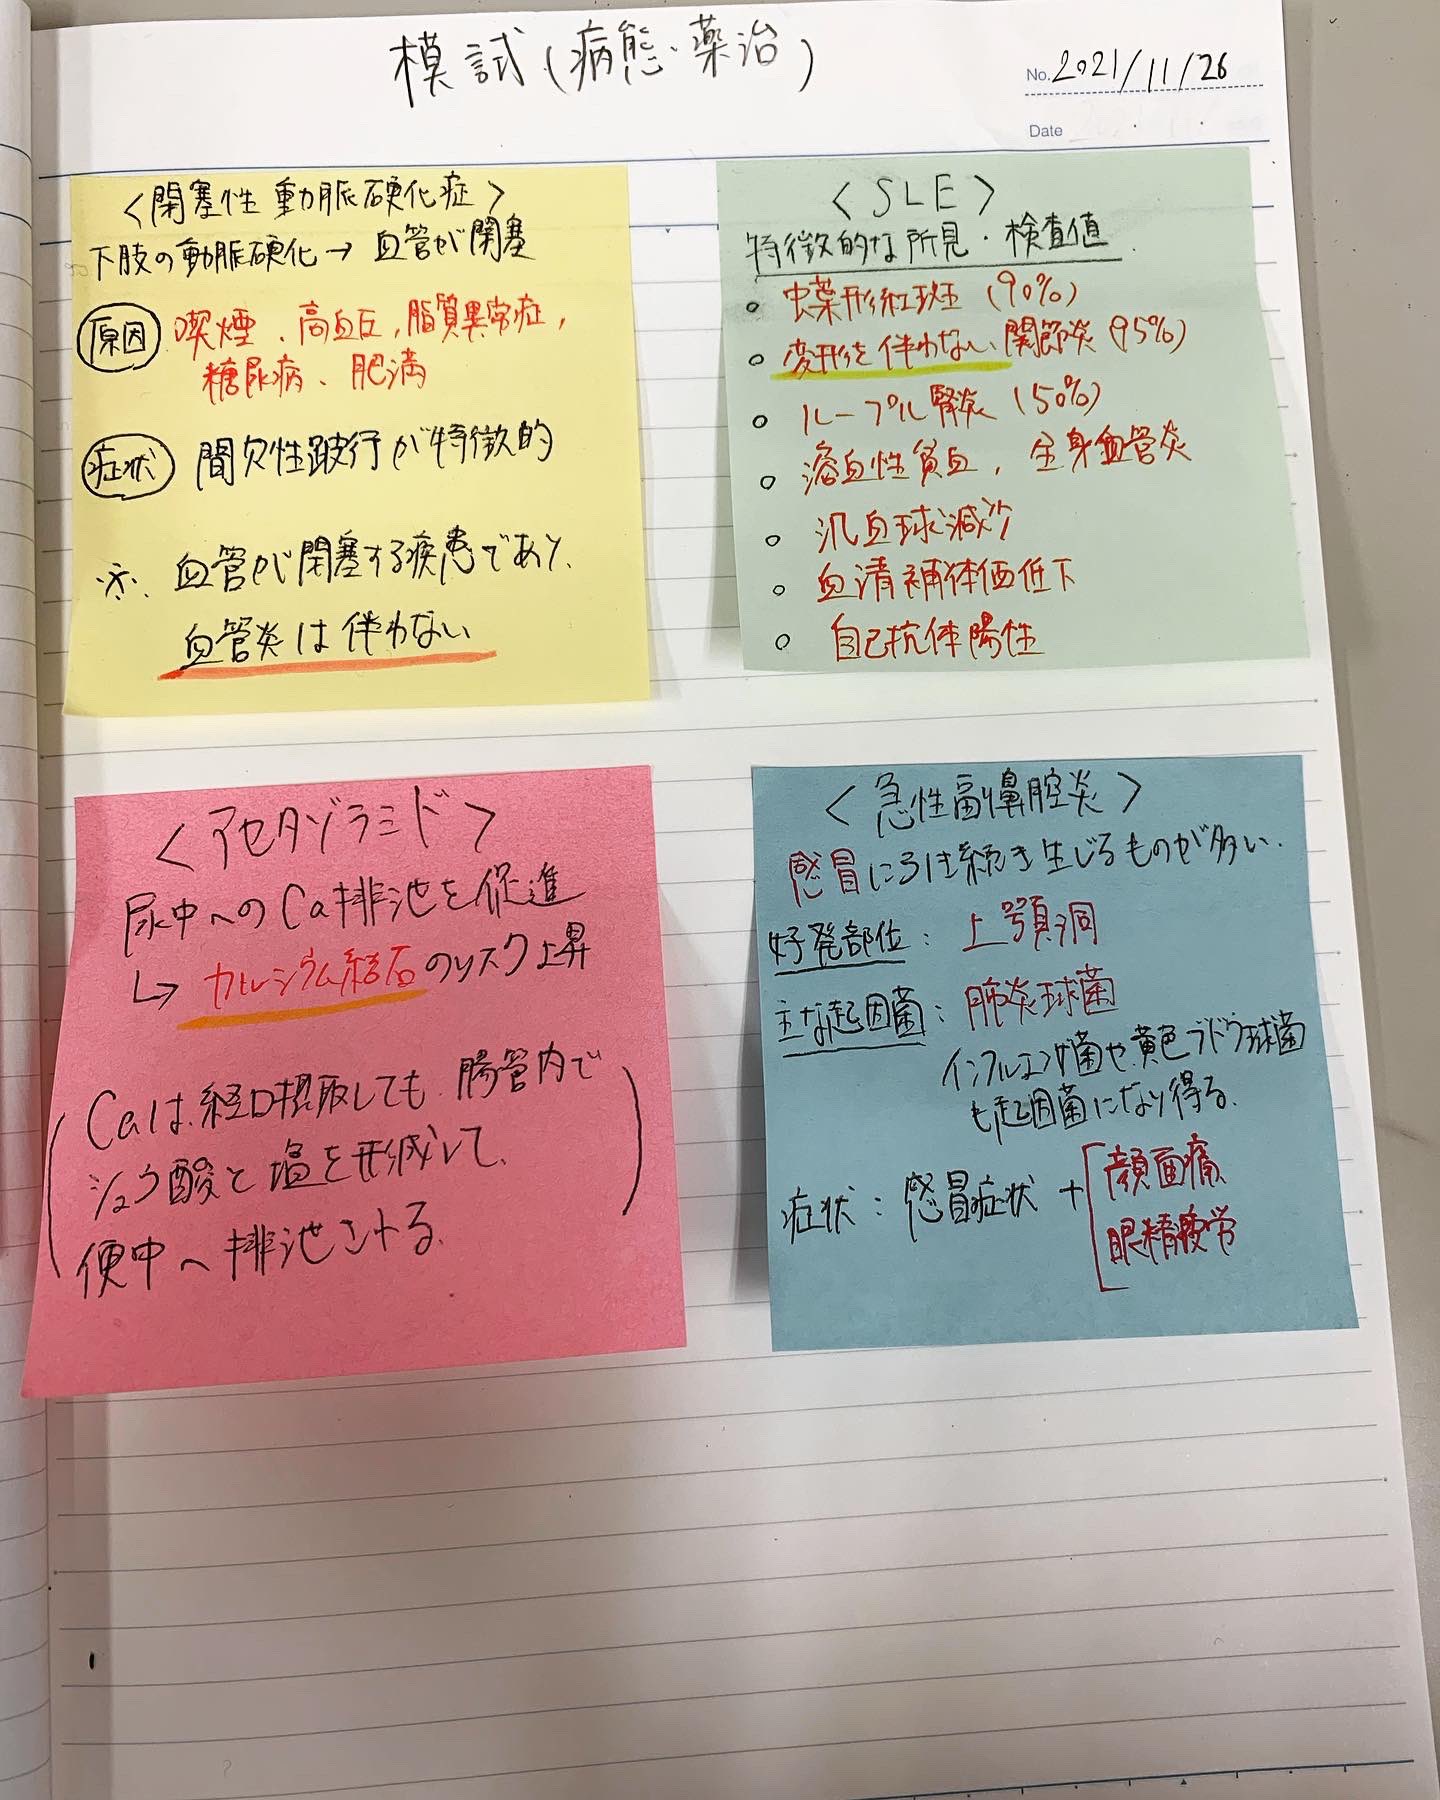 模試(病態・薬治)
No. 2021/11/26
Date
<閉塞性動脈硬化症>
下肢の動脈硬化→血管が閉塞
原因 喫煙、高血圧,脂質異常症,
糖尿病、肥満
症状 間欠性跛行が特徴的
※. 血管が閉塞する疾患であり、
血管炎は伴わない
<SLE>
特徴的な所見・検査値
○ 蝶形紅斑 (90%)
○ 変形を伴わない関節炎 (95%)
○ ループル腎炎 (50%)
○ 溶血性貧血, 全身血管炎
○ 汎血球減少
○ 血清補体価低下
○ 自己抗体陽性
<アセタゾラミド>
尿中へのCa排泄を促進
↳ カルシウム結石のリスク上昇
(Caは、経口摂取しても、腸管内で
シュウ酸と塩を形成して、
便中へ排泄される。)
<急性副鼻腔炎>
感冒に引き続き生じるものが多い.
好発部位: 上顎洞
主な起因菌: 肺炎球菌
インフルエンザ菌や黄色ブドウ球菌
も起因菌になり得る.
症状: 感冒症状 + [顔面痛
眼精疲労